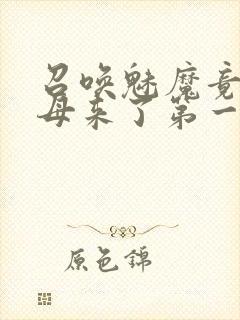 召唤魅魔竟
母来了第一
原色锦